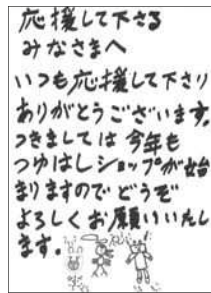 応援して下さる
みなさまへ
いつも応援して下さり
ありがとうございます。
つきましては今年も
つゆはしショップが始
まりますのでどうぞ
よろしくお願いいたし
ます。